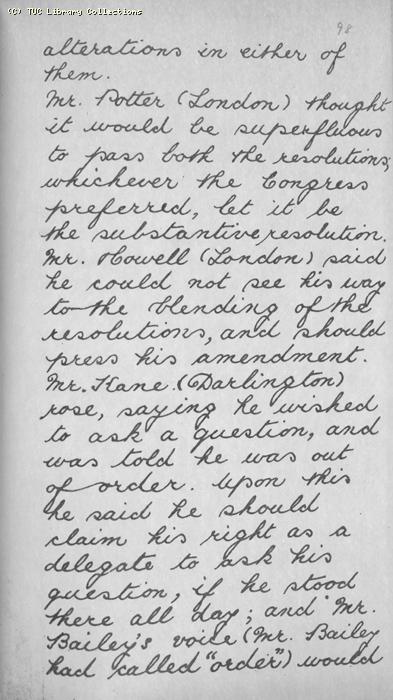 (C) TUC Library Collections
98
alterations in either of
them.
Mr. Potter (London) thought
it would be superfluous
to pass both the resolutions;
whichever the Congress
preferred, let it be
the substantive resolution.
Mr. Howell (London) said
he could not see his way
to the blending of the
resolutions, and should
press his amendment.
Mr. Kane (Darlington)
rose, saying he wished
to ask a question, and
was told he was out
of order. Upon this
he said he should
claim his right as a
delegate to ask his
question, if he stood
there all day; and Mr.
Bailey's voice (Mr. Bailey
had called "order") would